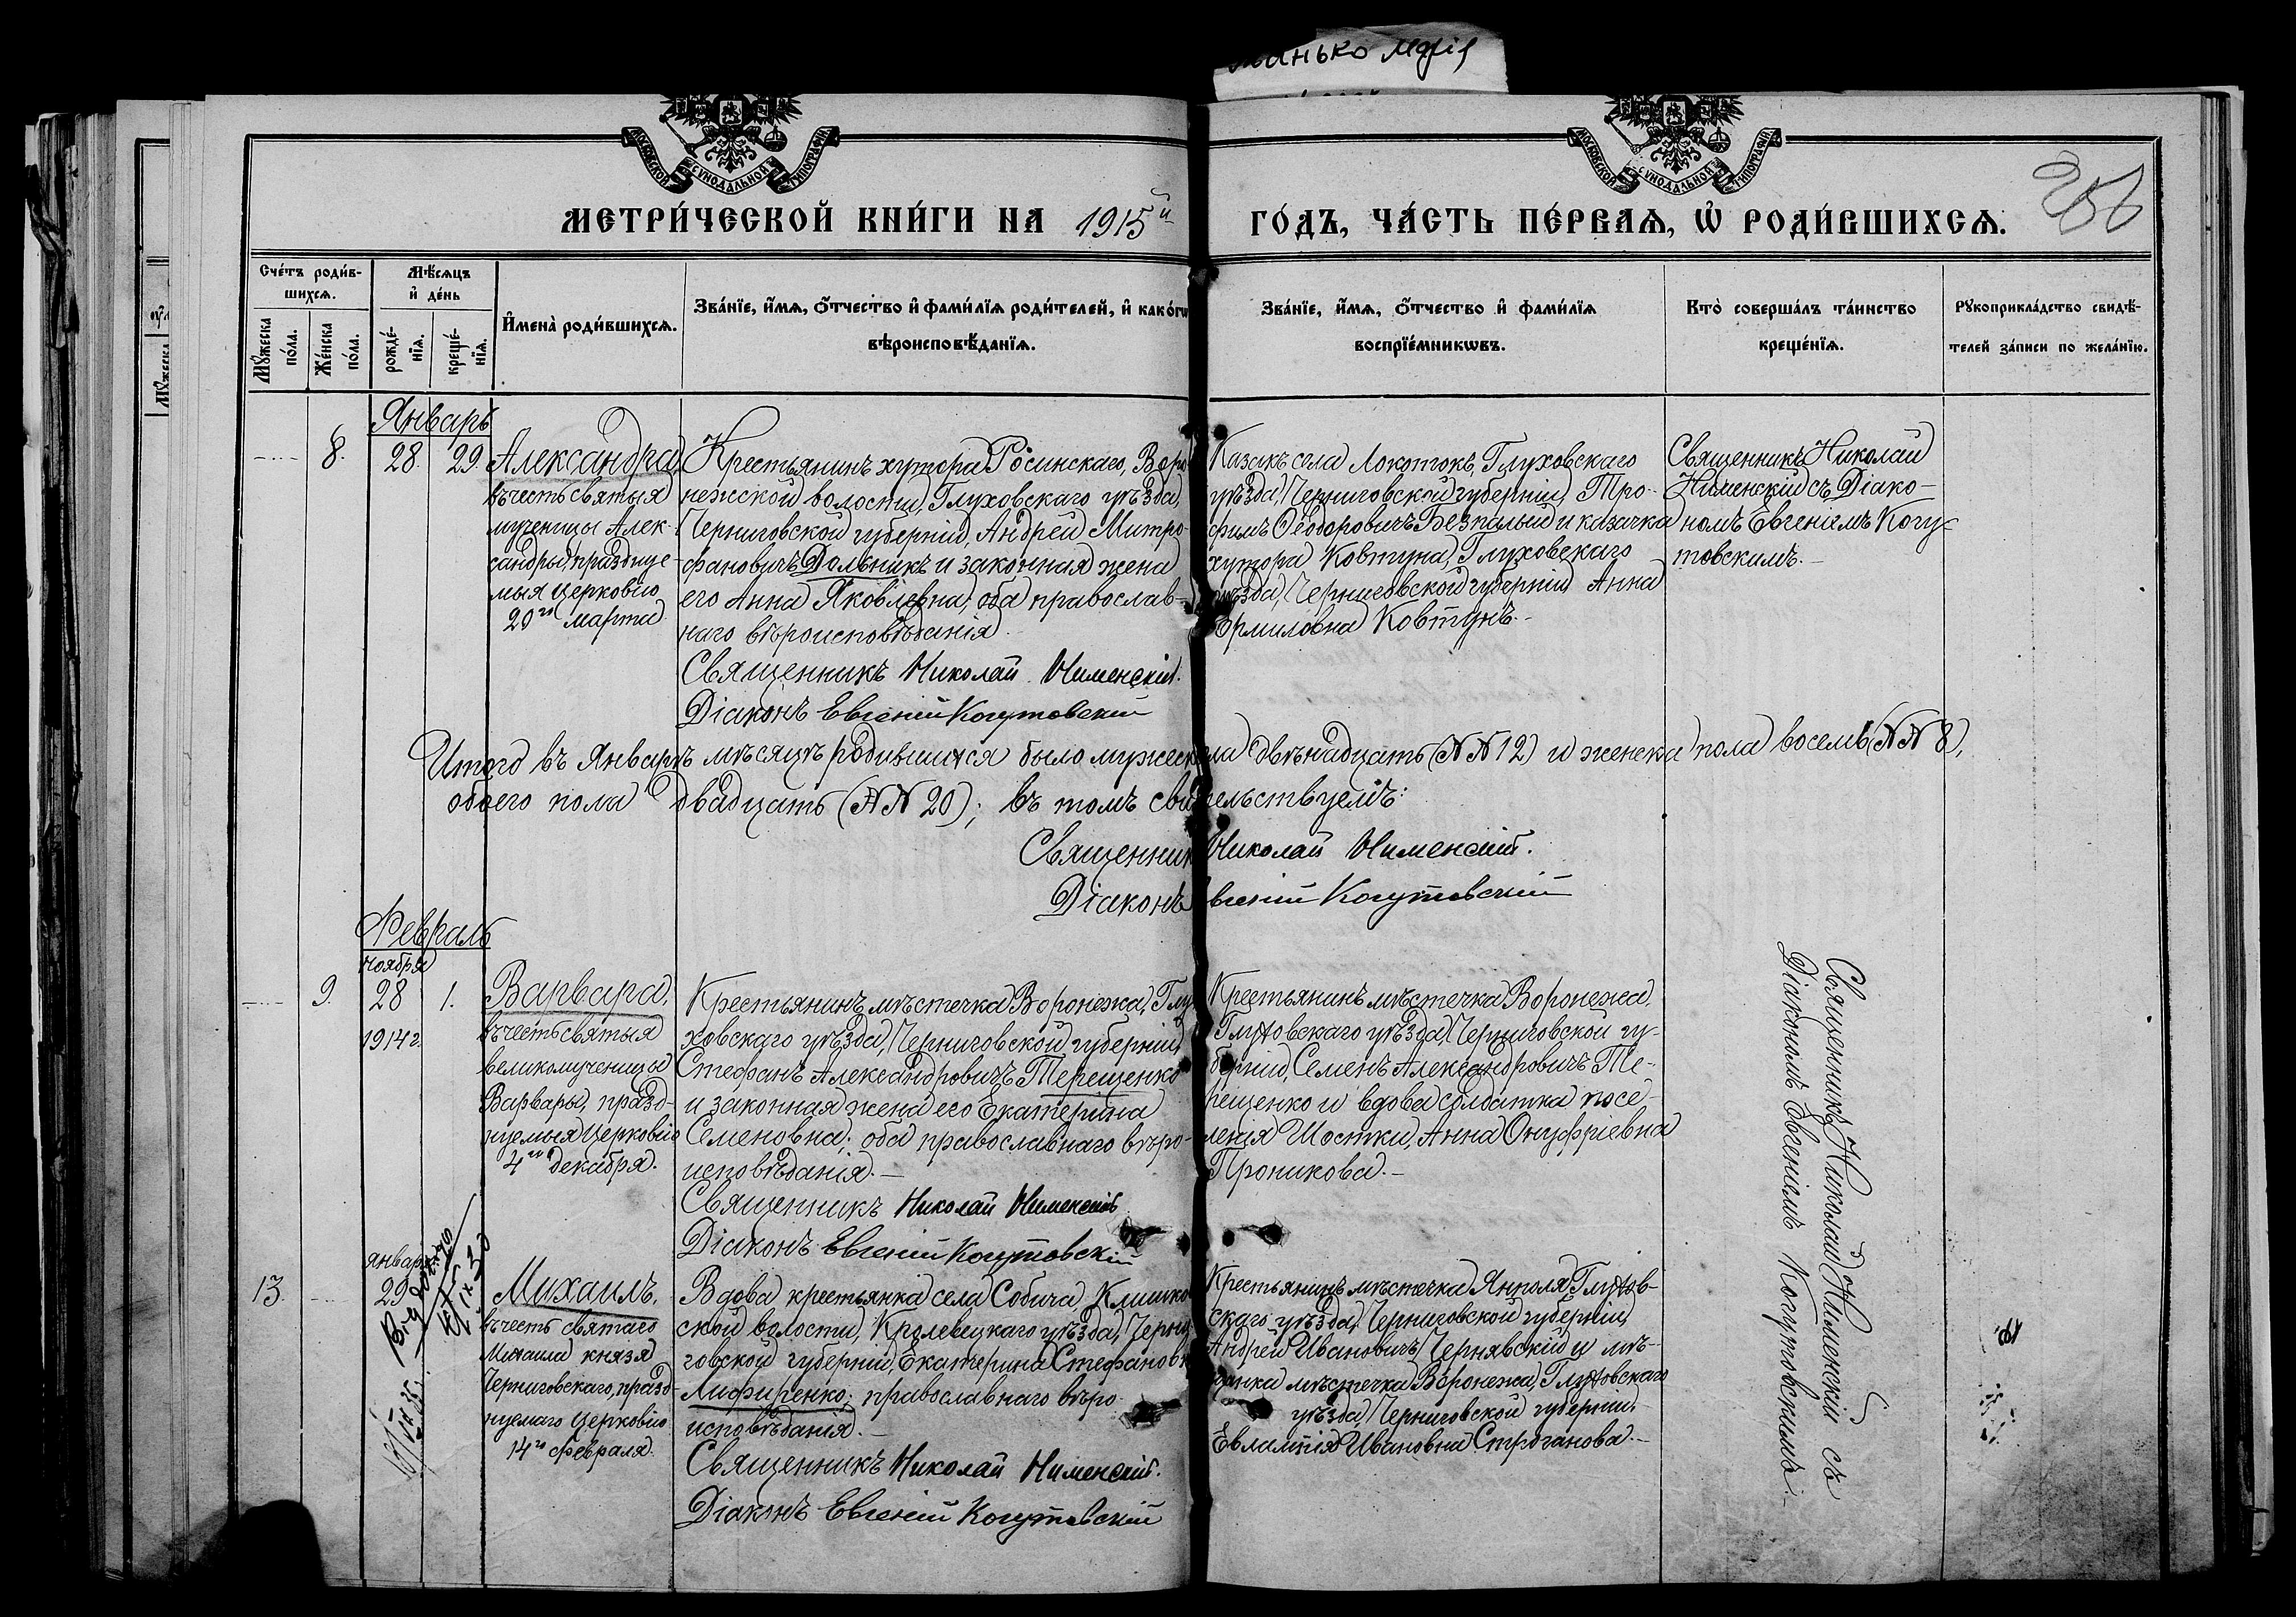 нько Марія
МОСКОВСКОЙ СѴНОДАЛЬНОЙ ТИПОГРАФІИ
МОСКОВСКОЙ СѴНОДАЛЬНОЙ ТИПОГРАФІИ
МЕТРИ́ЧЕСКОЙ КНИ́ГИ НА 1915й
ГО́ДЪ, ЧА́СТЬ ПЕ́РВАѦ, Ѡ҆ РОДИ́ВШИХСѦ.
256
Сче́тъ роди́в-
шихсѧ.
Мꙋ́жеска
по́ла.
Же́нска
по́ла.
Мѣ́сѧцъ
и҆ де́нь
рожде́-
нїѧ.
креще́-
нїѧ.
И҆мена̀ роди́вшихсѧ.
Зва́нїе, и҆́мѧ, ѻ҆́тчество и҆ фами́лїѧ роди́телей, и҆ како́гѡ
вѣроисповѣ́данїѧ.
Зва́нїе, и҆́мѧ, ѻ҆́тчество и҆ фами́лїѧ
воспрїе́мникѡвъ.
Кто̀ соверша́лъ та́инство
креще́нїѧ.
Рꙋкоприкла́дство свидѣ́-
телей за́писи по жела́нїю.
Январь
8.
28.
29.
Александра,
въ честь святыя
мученицы Алек-
сандры, праздну е-
мыя церковію
20го марта.
Крестьянинъ хутора Росинскаго, Воро-
нежской волости, Глуховскаго уѣзда,
Черниговской губерніи, Андрей Митро-
фановичъ Дольникъ и законная жена
его Анна Яковлевна; оба православ-
наго вѣроисповѣданія.
Священникъ Николай Нименскій.
Діаконъ Евгеній Когутовскій
Казакъ села Локотокъ, Глуховскаго
уѣзда, Черниговской губерніи, Тро-
фимъ Ѳеодоровичъ Безпалый и казачка
хутора Ковтуна, Глуховскаго
уѣзда, Черниговской губерніи Анна
Ермиловна Ковтунъ.-
Священникъ Николай
Нименскій съ Діако-
номъ Евгеніемъ Когу-
товскимъ.-
Итого въ Январѣ мѣсяцѣ родившихся было мужеска пола двѣнадцать (№№ 12) и женска пола восемь (№№ 8),
обоего пола двадцать (№№ 20); въ томъ свидѣтельствуемъ:
Священникъ Николай Нименскій.
Діаконъ Евгеній Когутовскій
Февраль
9.
ноября
28
1914 г.
1.
Варвара,
въ честь святыя
великомученицы
Варвары, празд-
нуемыя Церковію
4го декабря.
Крестьянинъ мѣстечка Воронежа, Глу-
ховскаго уѣзда, Черниговской губерніи,
Стефанъ Александровичъ Терещенко
и законная жена его Екатерина
Семеновна; оба православнаго вѣро-
исповѣданія.-
Священникъ Николай Нименскій
Діаконъ Евгеній Когутовскій
Крестьянинъ мѣстечка Воронежа,
Глуховскаго уѣзда, Черниговской гу-
берніи, Семенъ Александровичъ Те-
рещенко и вдова солдатка посе-
ленія Шостки, Анна Онуфріевна
Проникова.-
Священникъ Николай Нименскій съ
Діакономъ Евгеніемъ Когутовскимъ.-
13.
январ
29
Михаилъ,
въ честь святаго
Михаила князя
Черниговскаго, празд-
нуемаго Церковію
14го февраля.
Вдова крестьянка села Собича, Клишко
ской волости, Кролевецкаго уѣзда, Черни-
говской губерніи, Екатерина Стефановн
Лифиренко; православнаго вѣро-
исповѣданія.-
Священникъ Николай Нименскій.
Діаконъ Евгеній Когутовскій
Крестьянинъ мѣстечка Янполя, Глухов-
скаго уѣзда, Черниговской губерніи,
Андрей Ивановичъ Чернявскій и мѣ-
щанка мѣстечка Воронежа, Глуховскаго
уѣзда, Черниговской губерніи,
Евлампія Ивановна Строганова.-